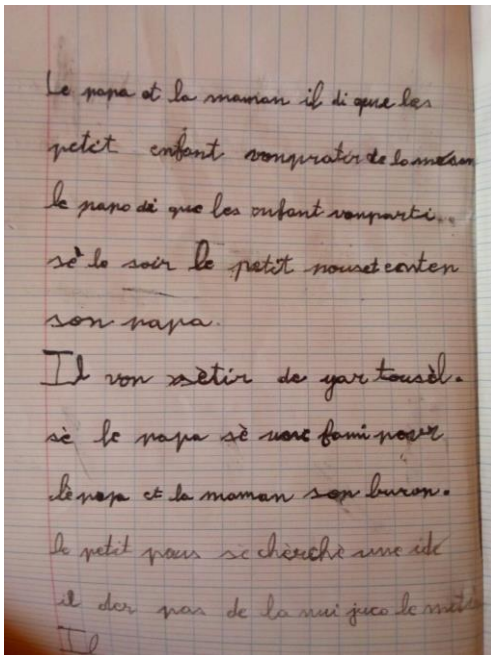 Le papa et la maman il di que les
petit enfant vonpratir de la meson
le papa di que les enfant vonparti..
sè le soir le petit pouset enten
son papa.
Il von sètir de yar tousèl.
sè le papa sè une fami pour
lè papa et la maman son buron.
le petit pous sè chèrchè une idé
il der pas de la nui juco le
Il